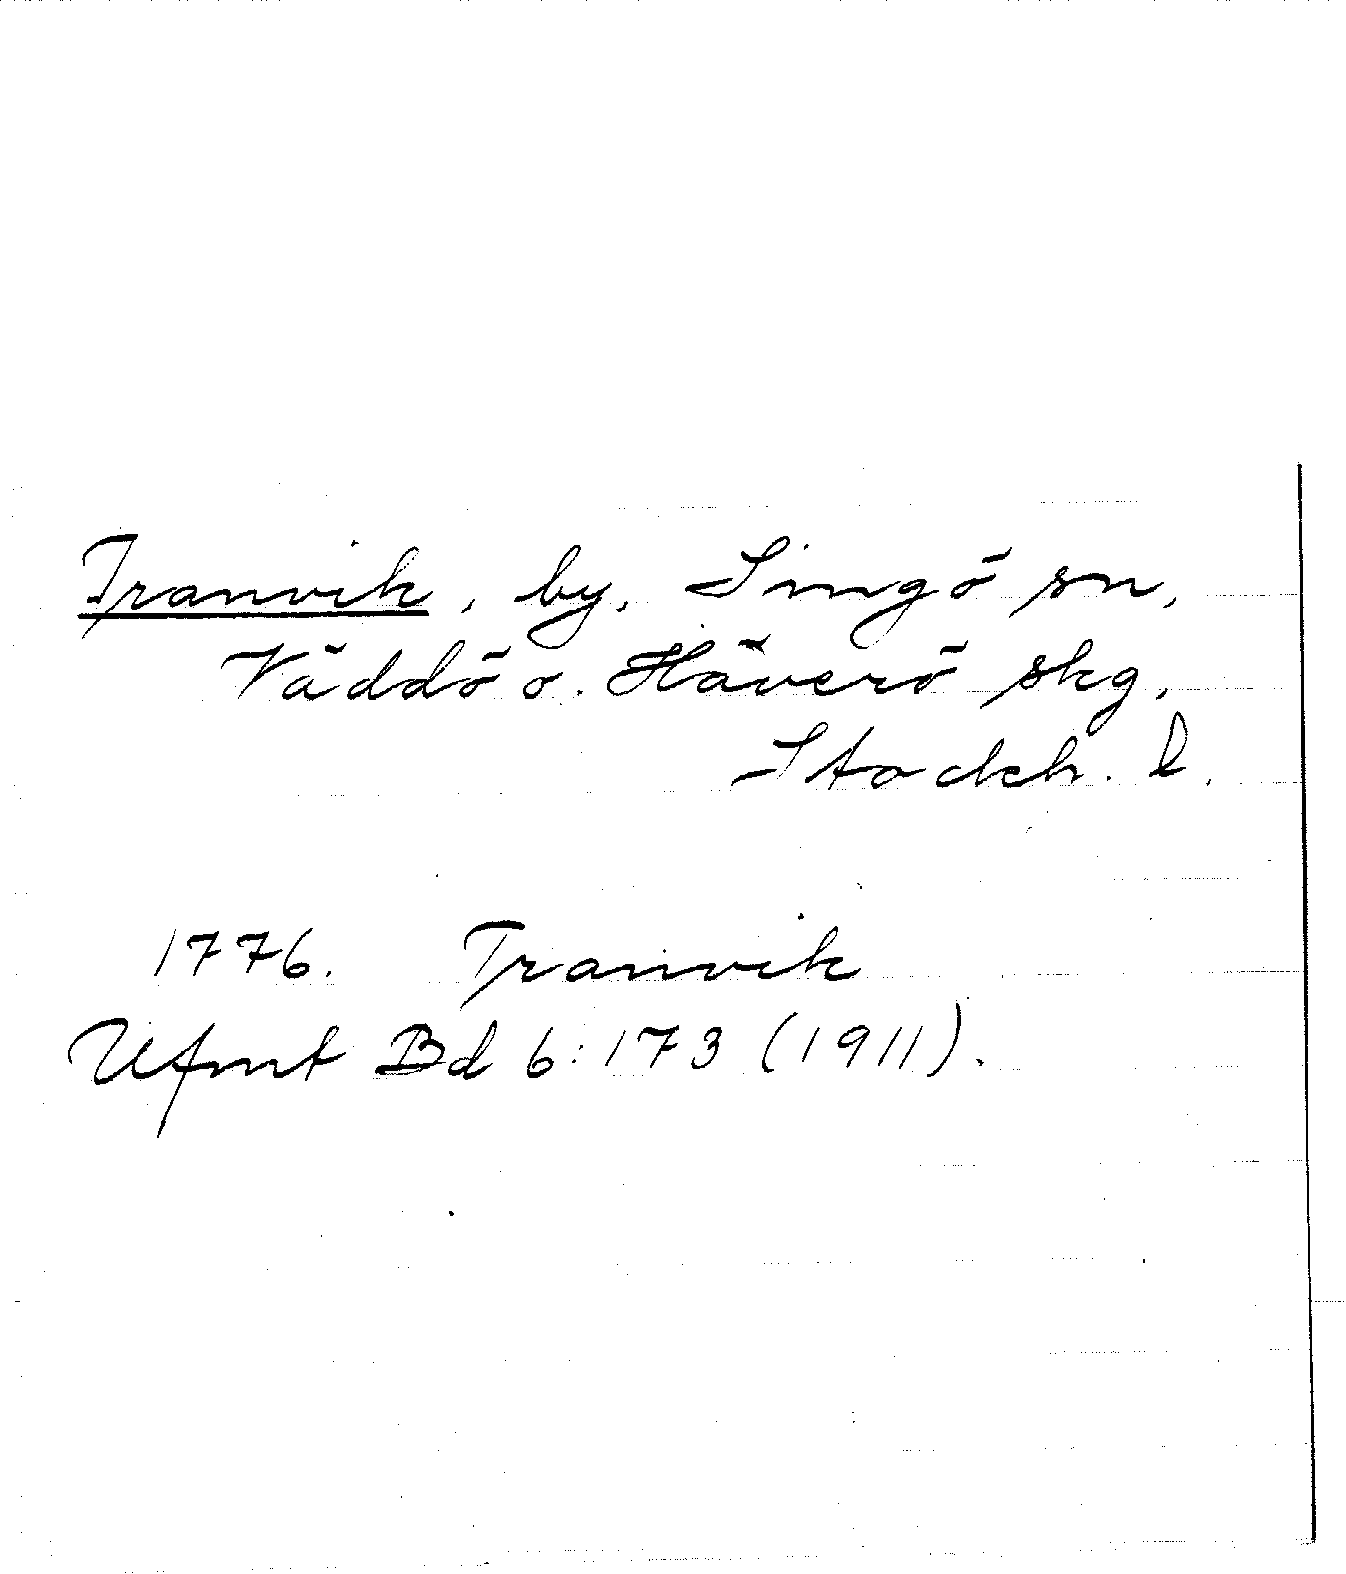 Tranvik, by, Singö sn,
Väddö o. Häverö skg,
Stockh. l.
1776. Tranvik
Ufmt Bd 6:173 (1911).